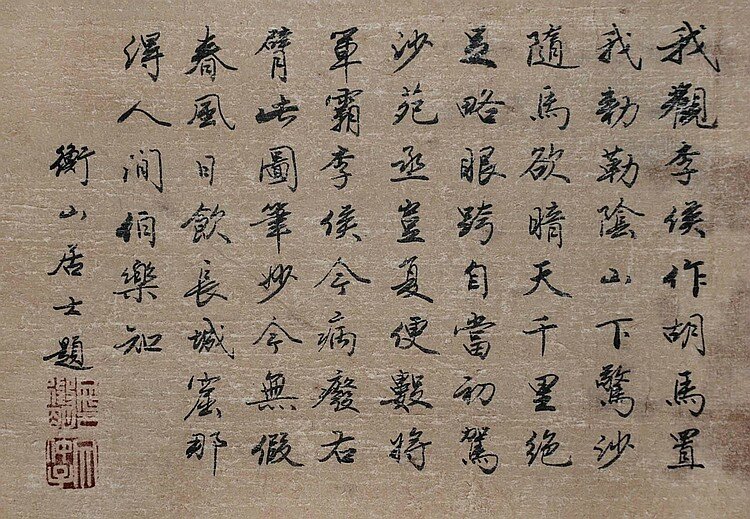 我觀李侯作胡馬置
我勅勒陰山下驚沙
隨馬欲暗天千里絶
足略眼跨自當初駕
沙苑丞豈复便數將
軍霸李侯今病廢右
臂此圖筆妙今無假
春風日飲長城窟那
得人間伯樂知
衡山居士題